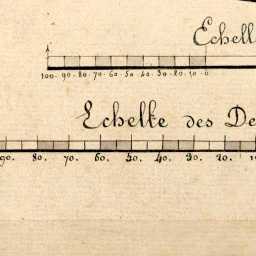 Echell
100. 90. 80. 70. 60. 50. 40. 30. 20. 10. 0
Echelle des De
90. 80. 70. 60. 50. 40. 30. 20. 10